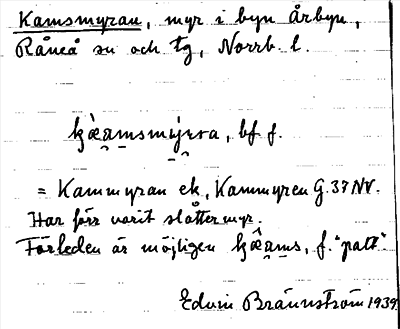 Kamsmyran, myr i byn Årbyn,
Råneå sn och tg, Norrb. l.
kæ̀amsmýrra, bf f.
= Kammyran ek, Kammyren G. 37 NV.
Har förr varit slåttermyr.
Förleden är möjligen kæ̂ams, f. "patt"
Edvin Brännström 1939.